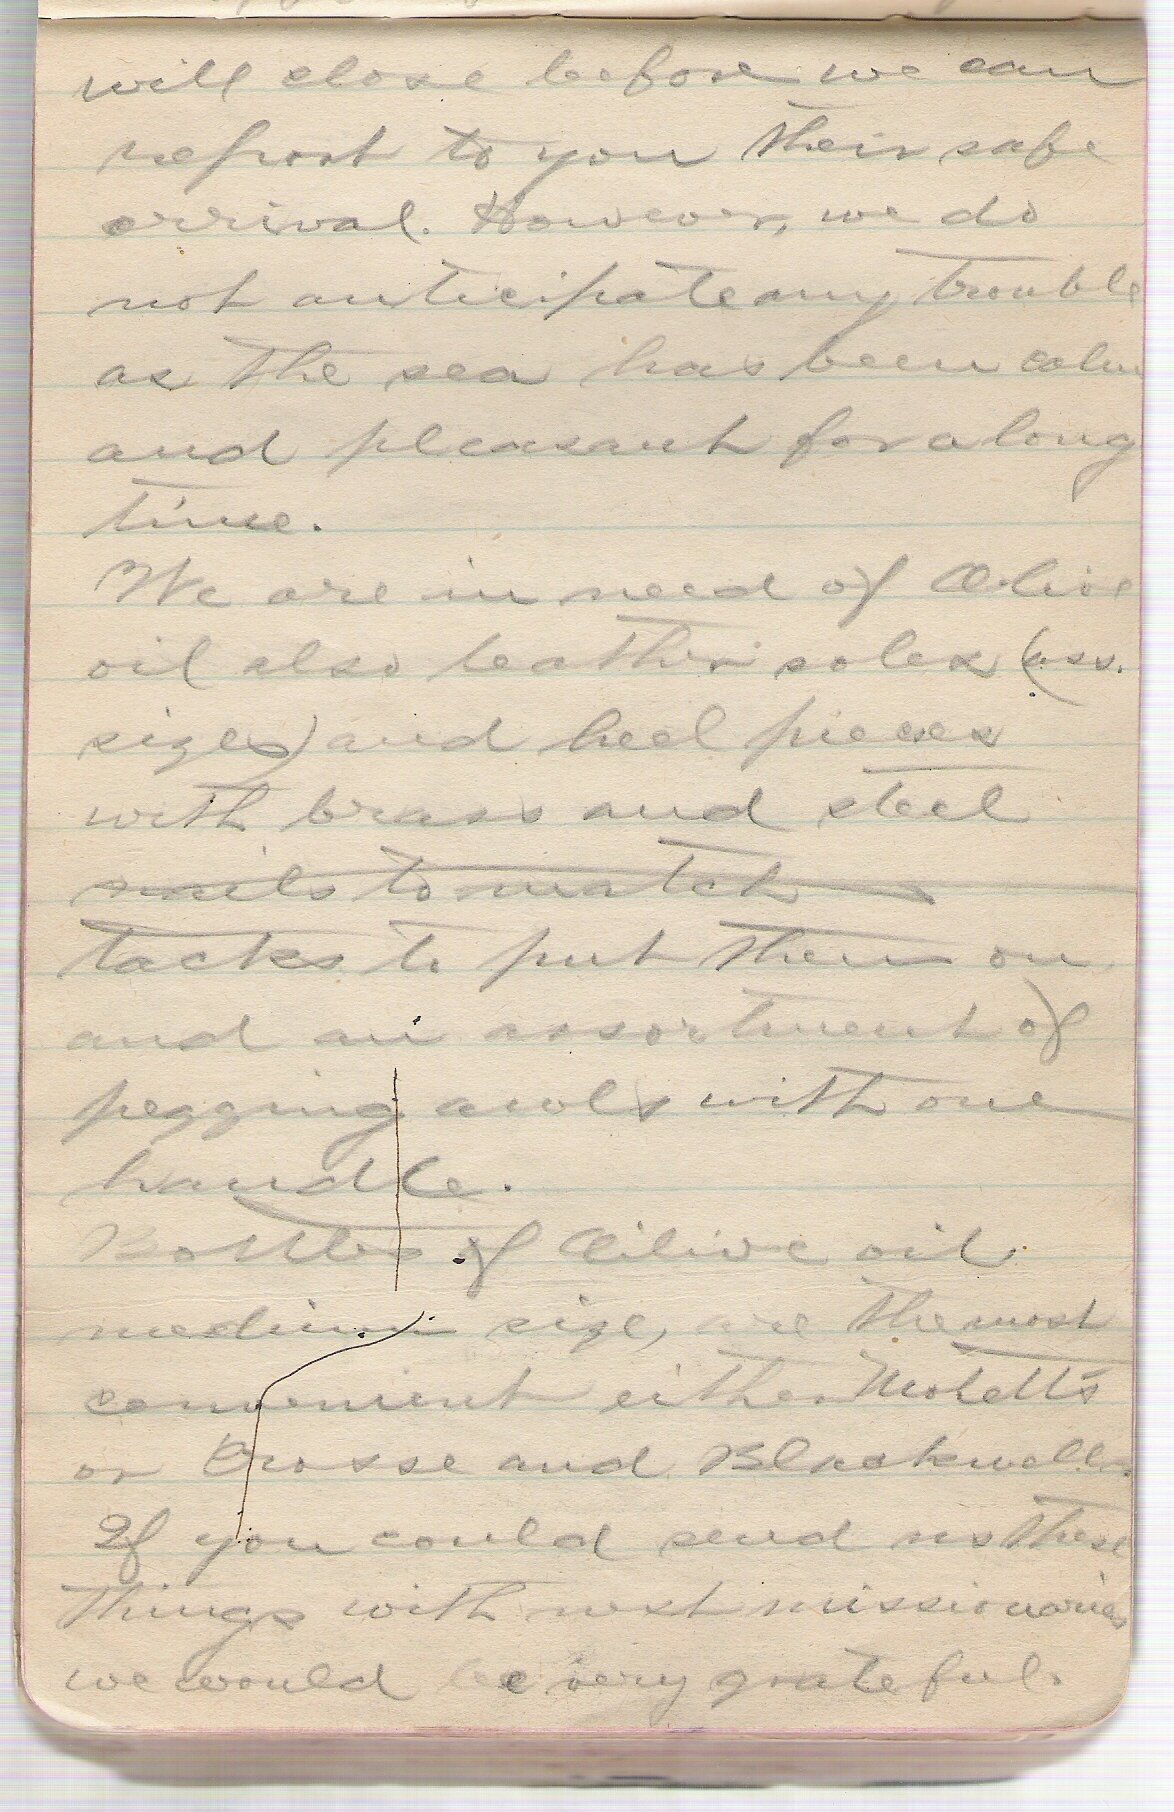 will close before we can
report to you their safe
arrival. However, we do
not anticipate any trouble
as the sea has been calm
and pleasant for a long
time.
We are in need of Olive
oil also leather soles (ass.
sizes) and heel pieces
with brass and steel
nails to match
tacks to put them on
and an assortment of
pegging awls with one
handle.
Bottles of Olive oil
medium size, are the most
convenient either
or Crosse and Blackwells.
If you could send us these
things with next missionaries
we would be very grateful.